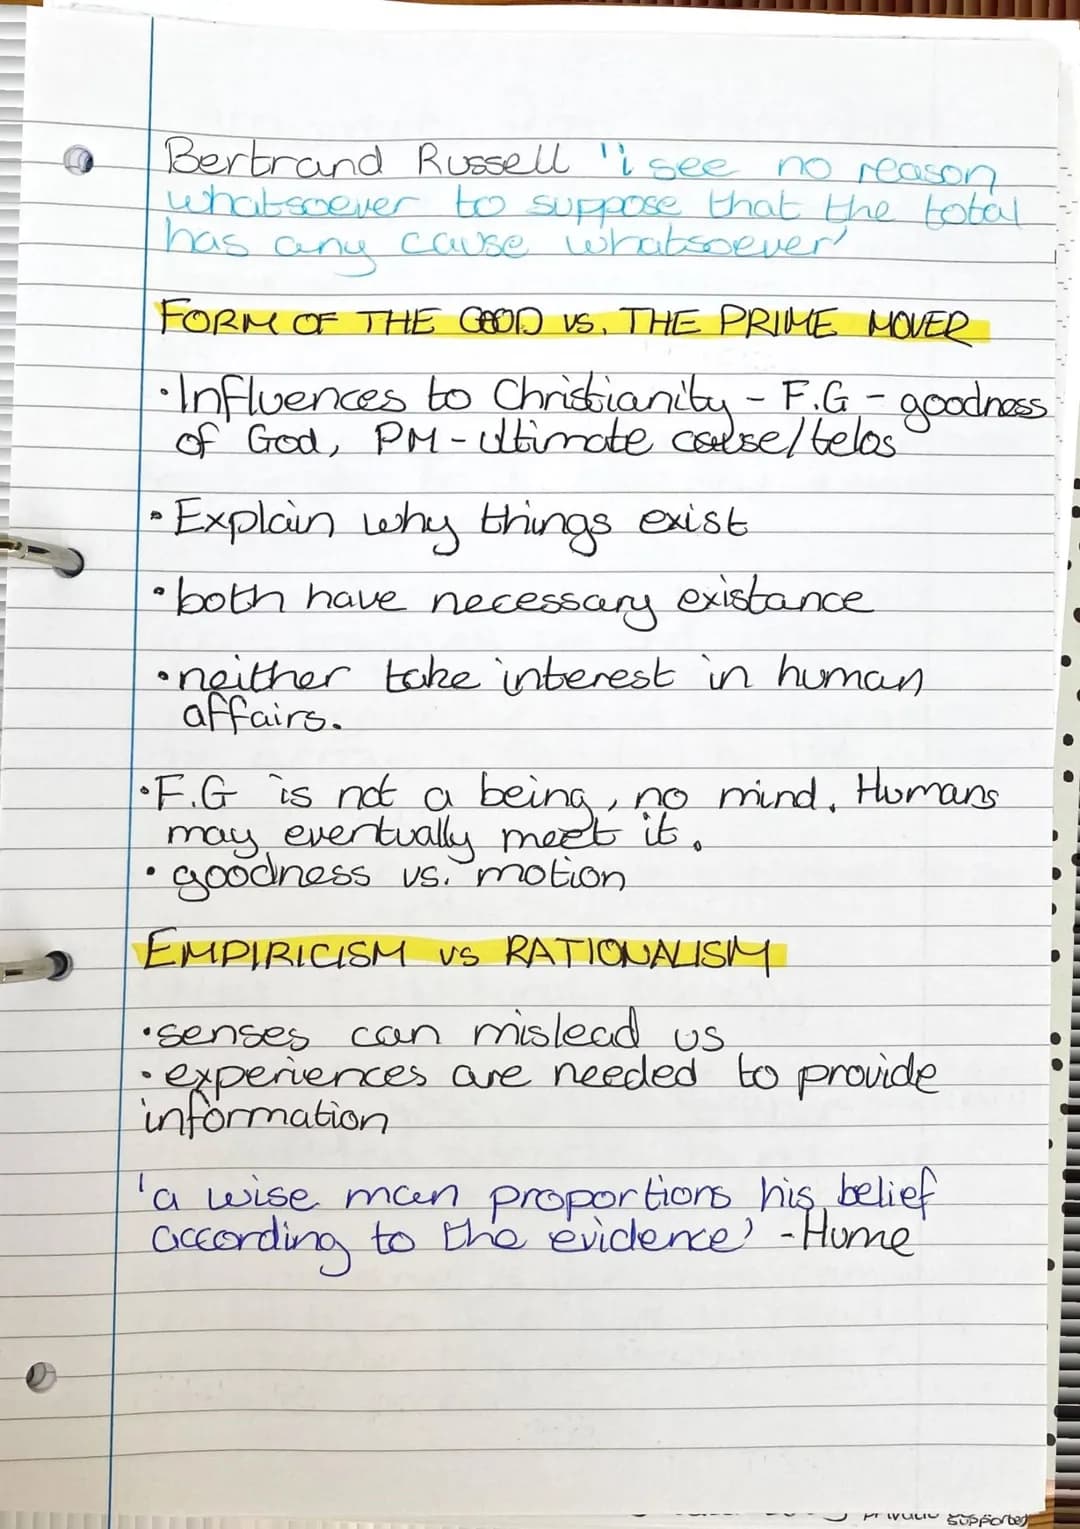 Bertrand Russell "i see no reason
whatsoever to suppose that the total
has any cause whatsoever'
FORM OF THE GOOD VS. THE PRIME MOVER
• Influences to Christianity - F.G - goodness
of God, PM - ultimate cause/telos
• Explain why things exist
• both have necessary existance
• neither take interest in human
affairs.
• F.G is not a being, no mind. Humans
may eventually meet it.
• goodness vs. motion
EMPIRICISM VS RATIONALISM
• senses can mislead us
• experiences are needed to provide
information
'a wise man proportions his belief
according to the evidence' - Hume
supported